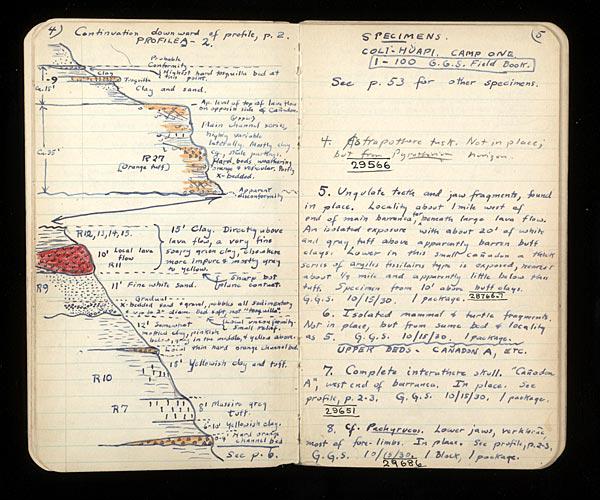 4) Continuation downward of profile, p. 2.
PROFILE A-2.
Probable
Conformity
Clay
Tosquilla
Highest hard tosquilla bed at
this point.
-9
Ca. 15'
Clay and sand.
Ap. level of top of lava flow
on opposite side of Cañadon.
(Upper)
Main channel series,
highly variable
laterally. Mostly clay
cg., shale partings.
Hard beds weathering
orange & vesicular. Partly
x-bedded.
Ca. 35'
R 27
(Orange tuff)
Apparent
disconformity
R12, 13, 14, 15.
15' Clay. Directly above
lava flow, a very fine
soapy green clay, elsewhere
more impure & mostly grey
to yellow.
10' Local lava
flow
R11
Sharp but
plane contact.
R9
11' Fine white sand.
Gradual
x-bedded sand & gravel, pebbles all sedimentary,
up to 2" diam. bed soft, not "tosquilla".
Local unconformity.
Small relief.
12' Somewhat
mottled clay, pinkish
below, gray in the middle, & yellow above.
Local thin hard orange channel bed.
15' Yellowish clay and tuff.
R10
R7
8' Massive grey
tuff.
6-10' Yellowish clay.
0-4' Hard orange
channel bed
See p. 6.
5
SPECIMENS.
COLI-HUAPI. CAMP ONE
1-100 G.G.S. Field Book.
See p. 53 for other specimens.
4. Astrapothere tusk. Not in place,
but from Pyrotherium horizon.
29566
5. Ungulate teeth and jaw fragments, found
in place. Locality about 1 mile west of
end of main barranca, beneath large lava flow.
An isolated exposure with about 20' of white
and gray tuff above apparently barren buff
clays. Lower in this small cañadon a thick
series of argiles fissilaires type is exposed, nearest
about ½ mile and apparently little below this
tuff. Specimen from 10' above buff clays.
G.G.S. 10/15/30. 1 package. 28766-7
6. Isolated mammal & turtle fragments.
Not in place, but from same bed & locality
as 5. G.G.S. 10/15/30. 1 package.
UPPER BEDS - CAÑADON A, ETC.
7. Complete interothere skull. "Cañadon
A", west end of barranca. In place. See
profile, p. 2-3. G.G.S. 10/15/30, 1 package.
29651
8. Cf. Pachyrucos. Lower jaws, vertebrae
most of fore-limbs. In place. See profile, p. 2-3.
G.G.S. 10/15/30. 1 Block, 1 package.
29686